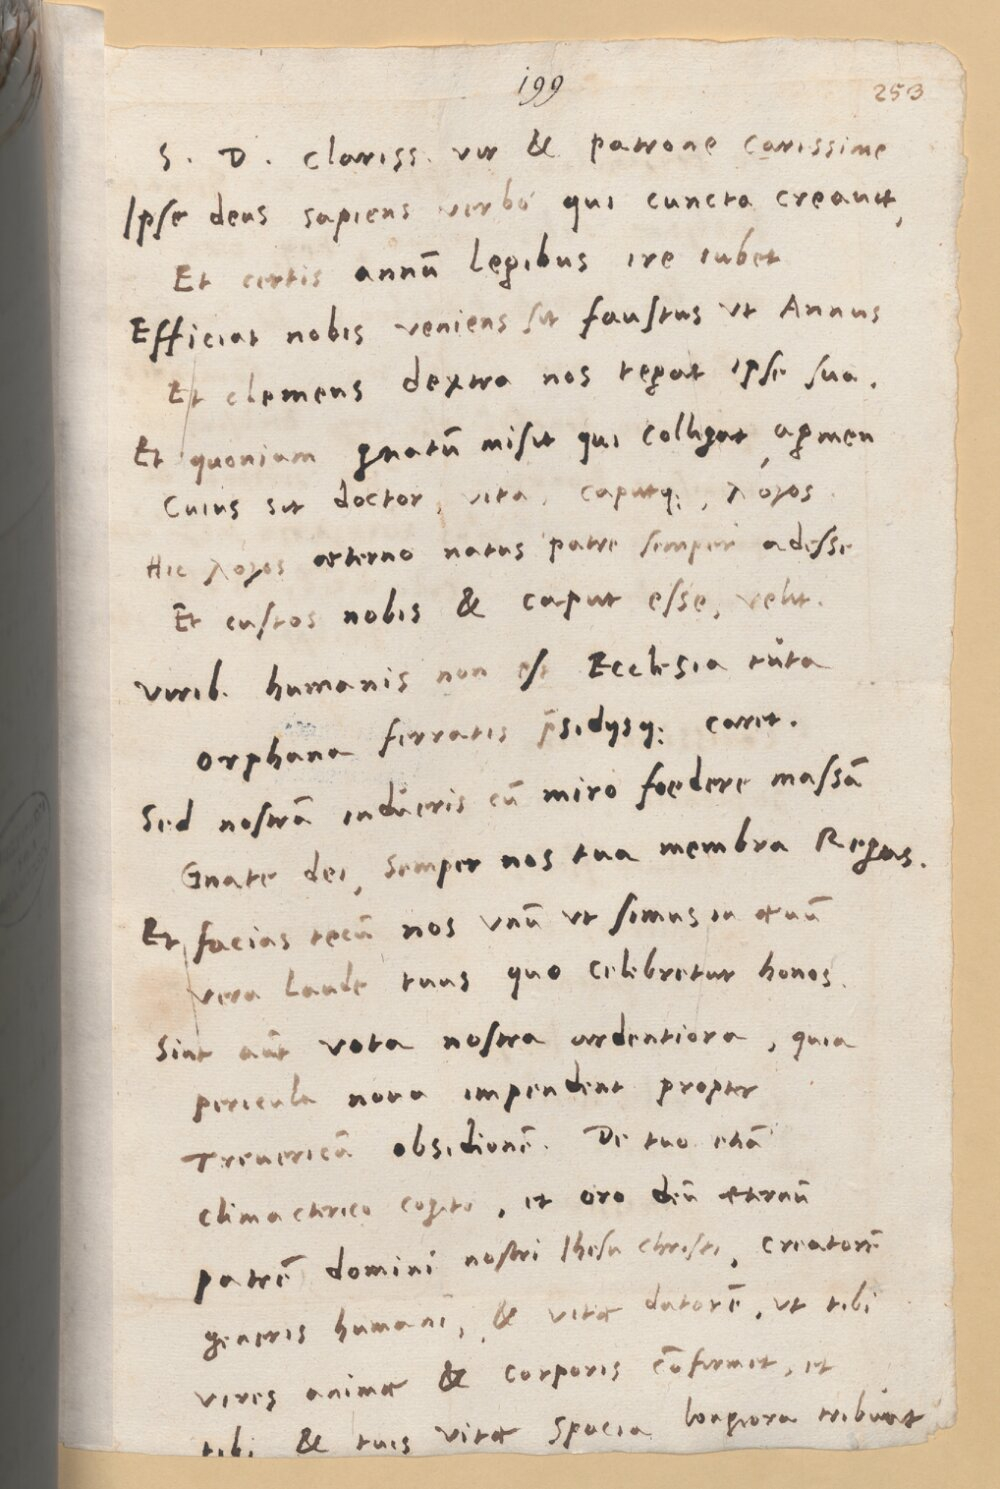 199
253
S. D. clariss. vir & patrone carissime
Ipse deus sapiens verbo qui cuncta creauit,
Et certis annū legibus ire iubet
Efficiat nobis veniens sit faustus vt Annus
Et clemens dextra nos regat ipse sua.
Et quoniam gnatū misit qui colligat agmen
Cuius sit doctor, vita, caputq;, λογος.
Hic λογος æterno natus patre semper adesse
Et custos nobis & caput esse, velit.
Virib. humanis non est Ecclesia tuta
Orphana ferratis p̄sidijsq; caret.
Sed nostrā indueris cū miro foedere massā
Gnate dei, semper nos tua membra Regas.
Et facias tecū nos vnū vt simus in æuū
vera laude tuus quo celebretur honos.
Sint aūt vota nostra ardentiora, quia
pericula nova impendent propter
Treuericā obsidionē. De tuo etiā
climacterico cogito, et oro deū æternū
patrē domini nostri Ihesu christi, creatorē
generis humani, & vitæ datorē, vt tibi
vires animæ & corporis cōfirmet, et
tibi & tuis vitæ spacia longiora tribuat